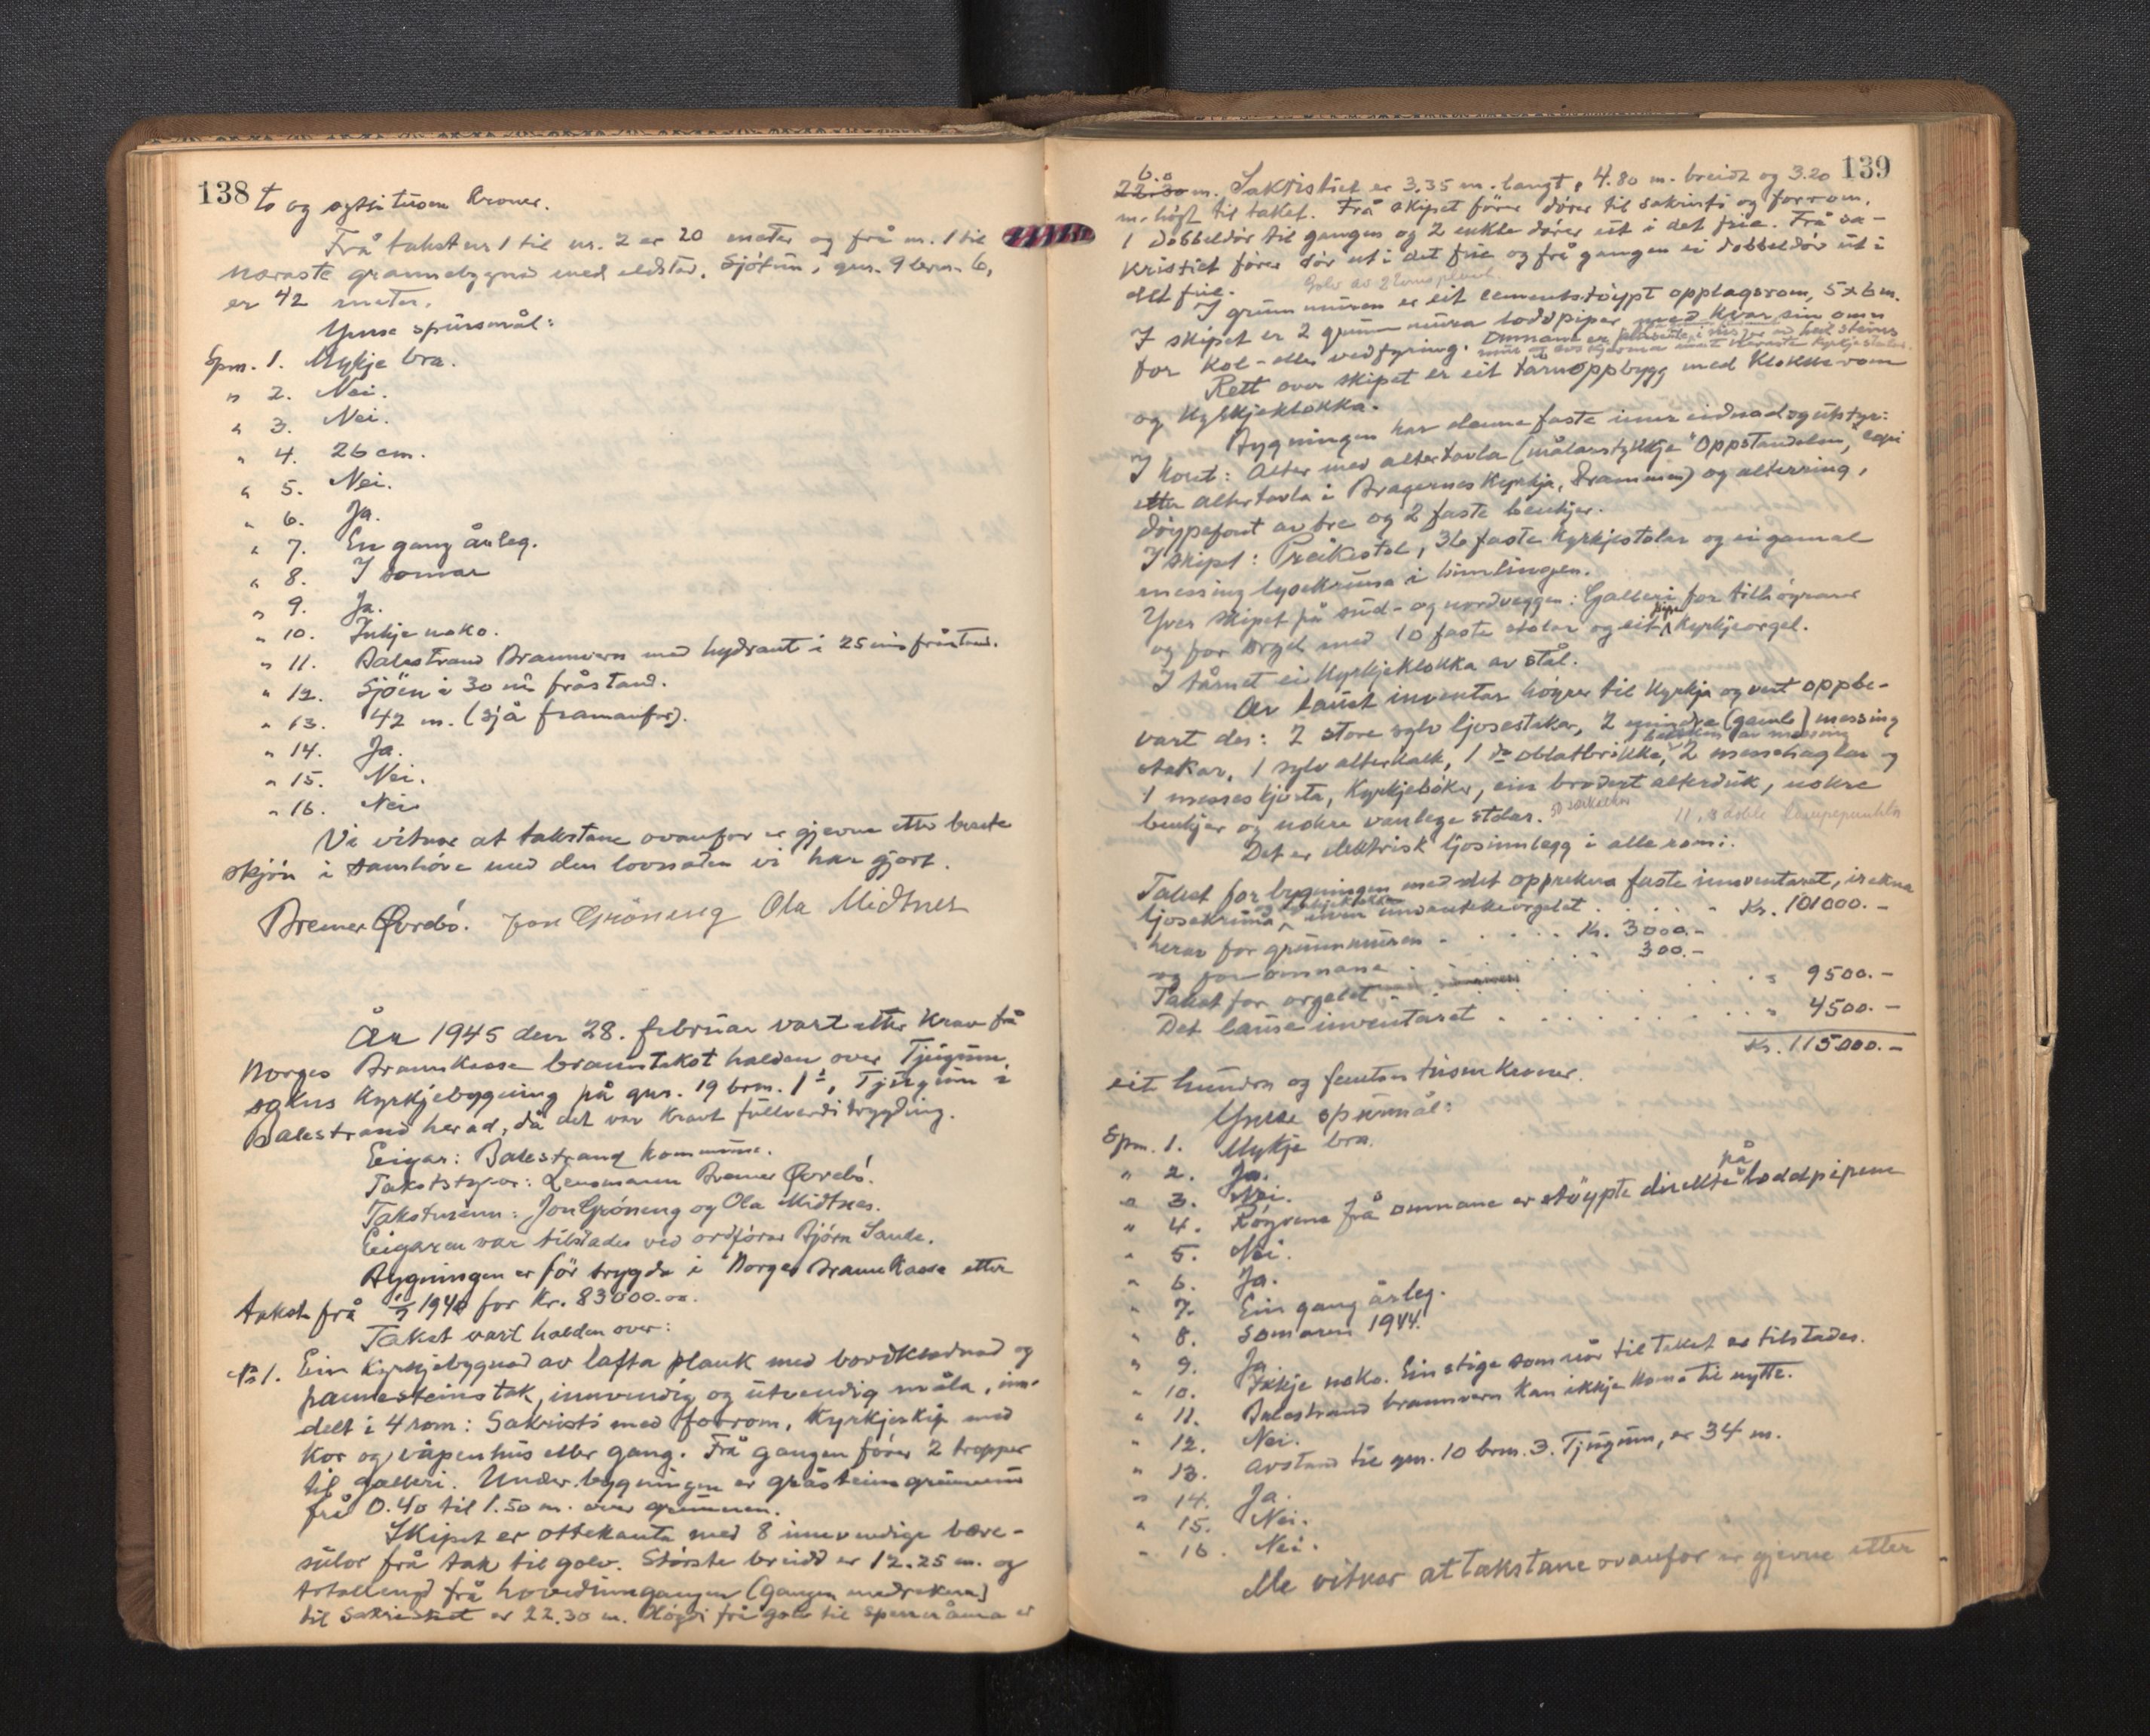 138
to og sytti tusen kroner.
Frå takstnr 1 til nr. 2 er 20 meter og frå nr. 1 til
næraste grannebygnad med eldstad, Sjötun, gnr. 9 brnr. 6,
er 42 meter.
Ymse spursmål:
Spm. 1. Mykje bra.
" 2. Nei.
" 3. Nei.
" 4. 26 cm.
" 5. Nei.
" 6. Ja.
" 7. En gang årleg.
" 8. I somar
" 9. Ja.
" 10. Inkje noko.
" 11. Balestrand Brannvern med hydrant i 25 m's fråstand.
" 12. Sjöen i 30 m's fråstand.
" 13. 42 m. (sjå framanfor).
" 14. Ja.
" 15. Nei.
" 16. Nei
Vi vitnar at takstane ovanfor er gjevne etter beste
skjön i samhöve med den lovnaden vi har gjort.
Bremer Øvrebö. Jon Gröneng Ola Midtnes
År 1945 den 28. februar vart etter krav frå
Norges Brannkasse branntakst halden over Tjugum
sokns kyrkjebygning på gnr. 19 brnr. 1, Tjugum i
Balestrand herad, då det var kravt fullverditrygding.
Eigar: Balestrand kommune.
Takststyrar: Lensmann Bremer Øvrebö.
Takstmenn: Jon Gröneng og Ola Midtnes.
Eigaren var tilstades ved ordförar Björn Sande.
Bygningen er för trygda i Norges Brannkasse etter
takst frå 1940 for kr. 83000.00.
Takst vart halden over:
No 1. Ein kyrkjebygnad av lafta plank med bordklednad og
pannesteinstak, innvendig og utvendig måla, inn-
delt i 4 rom: Sakristi med forrom, kyrkjeskip med
kor og våpenhus eller gang. Frå gangen förer 2 trapper
til galleri. Under bygningen er gråsteinsgrunnmur
frå 0.40 til 1.50 m. over grunnen.
Skipet er ottekanta med 8 innvendige bære-
sulor frå tak til golv. Störste breidd er 12.25 m. og
totallengd frå hovedinngangen (gangen medrekna)
til sakristiet er 22.30 m. Högd frå golv til sperreråma er
139
6.0
22.30 m. Sakristiet er 3.35 m. langt, 4.80 m. breidt og 3.20
m. högt til taket. Frå skipet förer dörer til sakristi og forrom,
1 dobbeldör til gangen og 2 enkle dörer ut i det frie. Frå sa-
kristiet förer dör ut i det frie og frå gangen ei dobbeldör ut i
det frie. Golv av 2 toms plank
I grunnmuren er eit cementstöypt opplagsrom, 5x6 m.
I skipet er 2 grunnmura loddpiper med kvar sin omn
for kol- eller vedfyring. Omnane er
Rett over skipet er eit tårnoppbygg med klokkerom
og kyrkjeklokka.
Bygningen har denne faste innreidnad og utstyr:
I koret: Alter med altertavla (målarstykkje "Oppstandelsen," copi
etter altertavla i Bragernes kyrkje, Drammen) og alterring,
döypefont av tre og 2 faste benkjer.
I skipet: Preikestol, 36 faste kyrkjestolar og ei gamal
messing lysekruna i himlingen.
Yver skipet på sud- og nordveggen: Galleri for tilhöyrarar
og for orgel med 10 faste stolar og eit pipe kyrkjeorgel.
I tårnet ei kyrkjeklokka av stål.
Av laust inventar höyrer til kyrkja og vert oppbe-
vart der: 2 store sylv ljosestakar, 2 mindre (gamle) messing
stakar, 1 sylv alterkalk, 1 do oblatbrikke, 2 messehaglar og
1 messeskjorta, kyrkjebøker, ein brodert alterduk, nokre
benkjer og nokre vanlege stolar. 11, 3 doble lampepunkter
Det er elektrisk ljosinnlegg i alle romi.
Takst for bygningen med det opprekna faste innventaret, irekna
ljosekruna, men undanteke orgelet . . . . . kr. 101000.-
herav for grunnmuren . . . . . kr. 3000.-
og for omnane . . . . . 300.-
Takst for orgelet . . . . . " 9500.-
Det lause inventaret . . . . . " 4500.-
Kr. 115000.-
eit hundra og femten tusen kroner.
Ymse spursmål:
Spm. 1. Mykje bra.
" 2. Ja.
" 3. Nei.
" 4. Röyrene frå omnane er stöypte direkte på loddpipene
" 5. Nei.
" 6. Ja.
" 7. Ein gang årleg.
" 8. Somaren 1944.
" 9. Ja.
" 10. Ikkje noko. Ein stige som når til taket er tilstades.
" 11. Balestrand brannvern kan ikkje koma til nytte.
" 12. Nei.
" 13. Avstand til gnr. 10 brnr. 3. Tjugum, er 34 m.
" 14. Ja.
" 15. Nei.
" 16. Nei.
Me vitnar at takstane ovanfor er gjevne etter